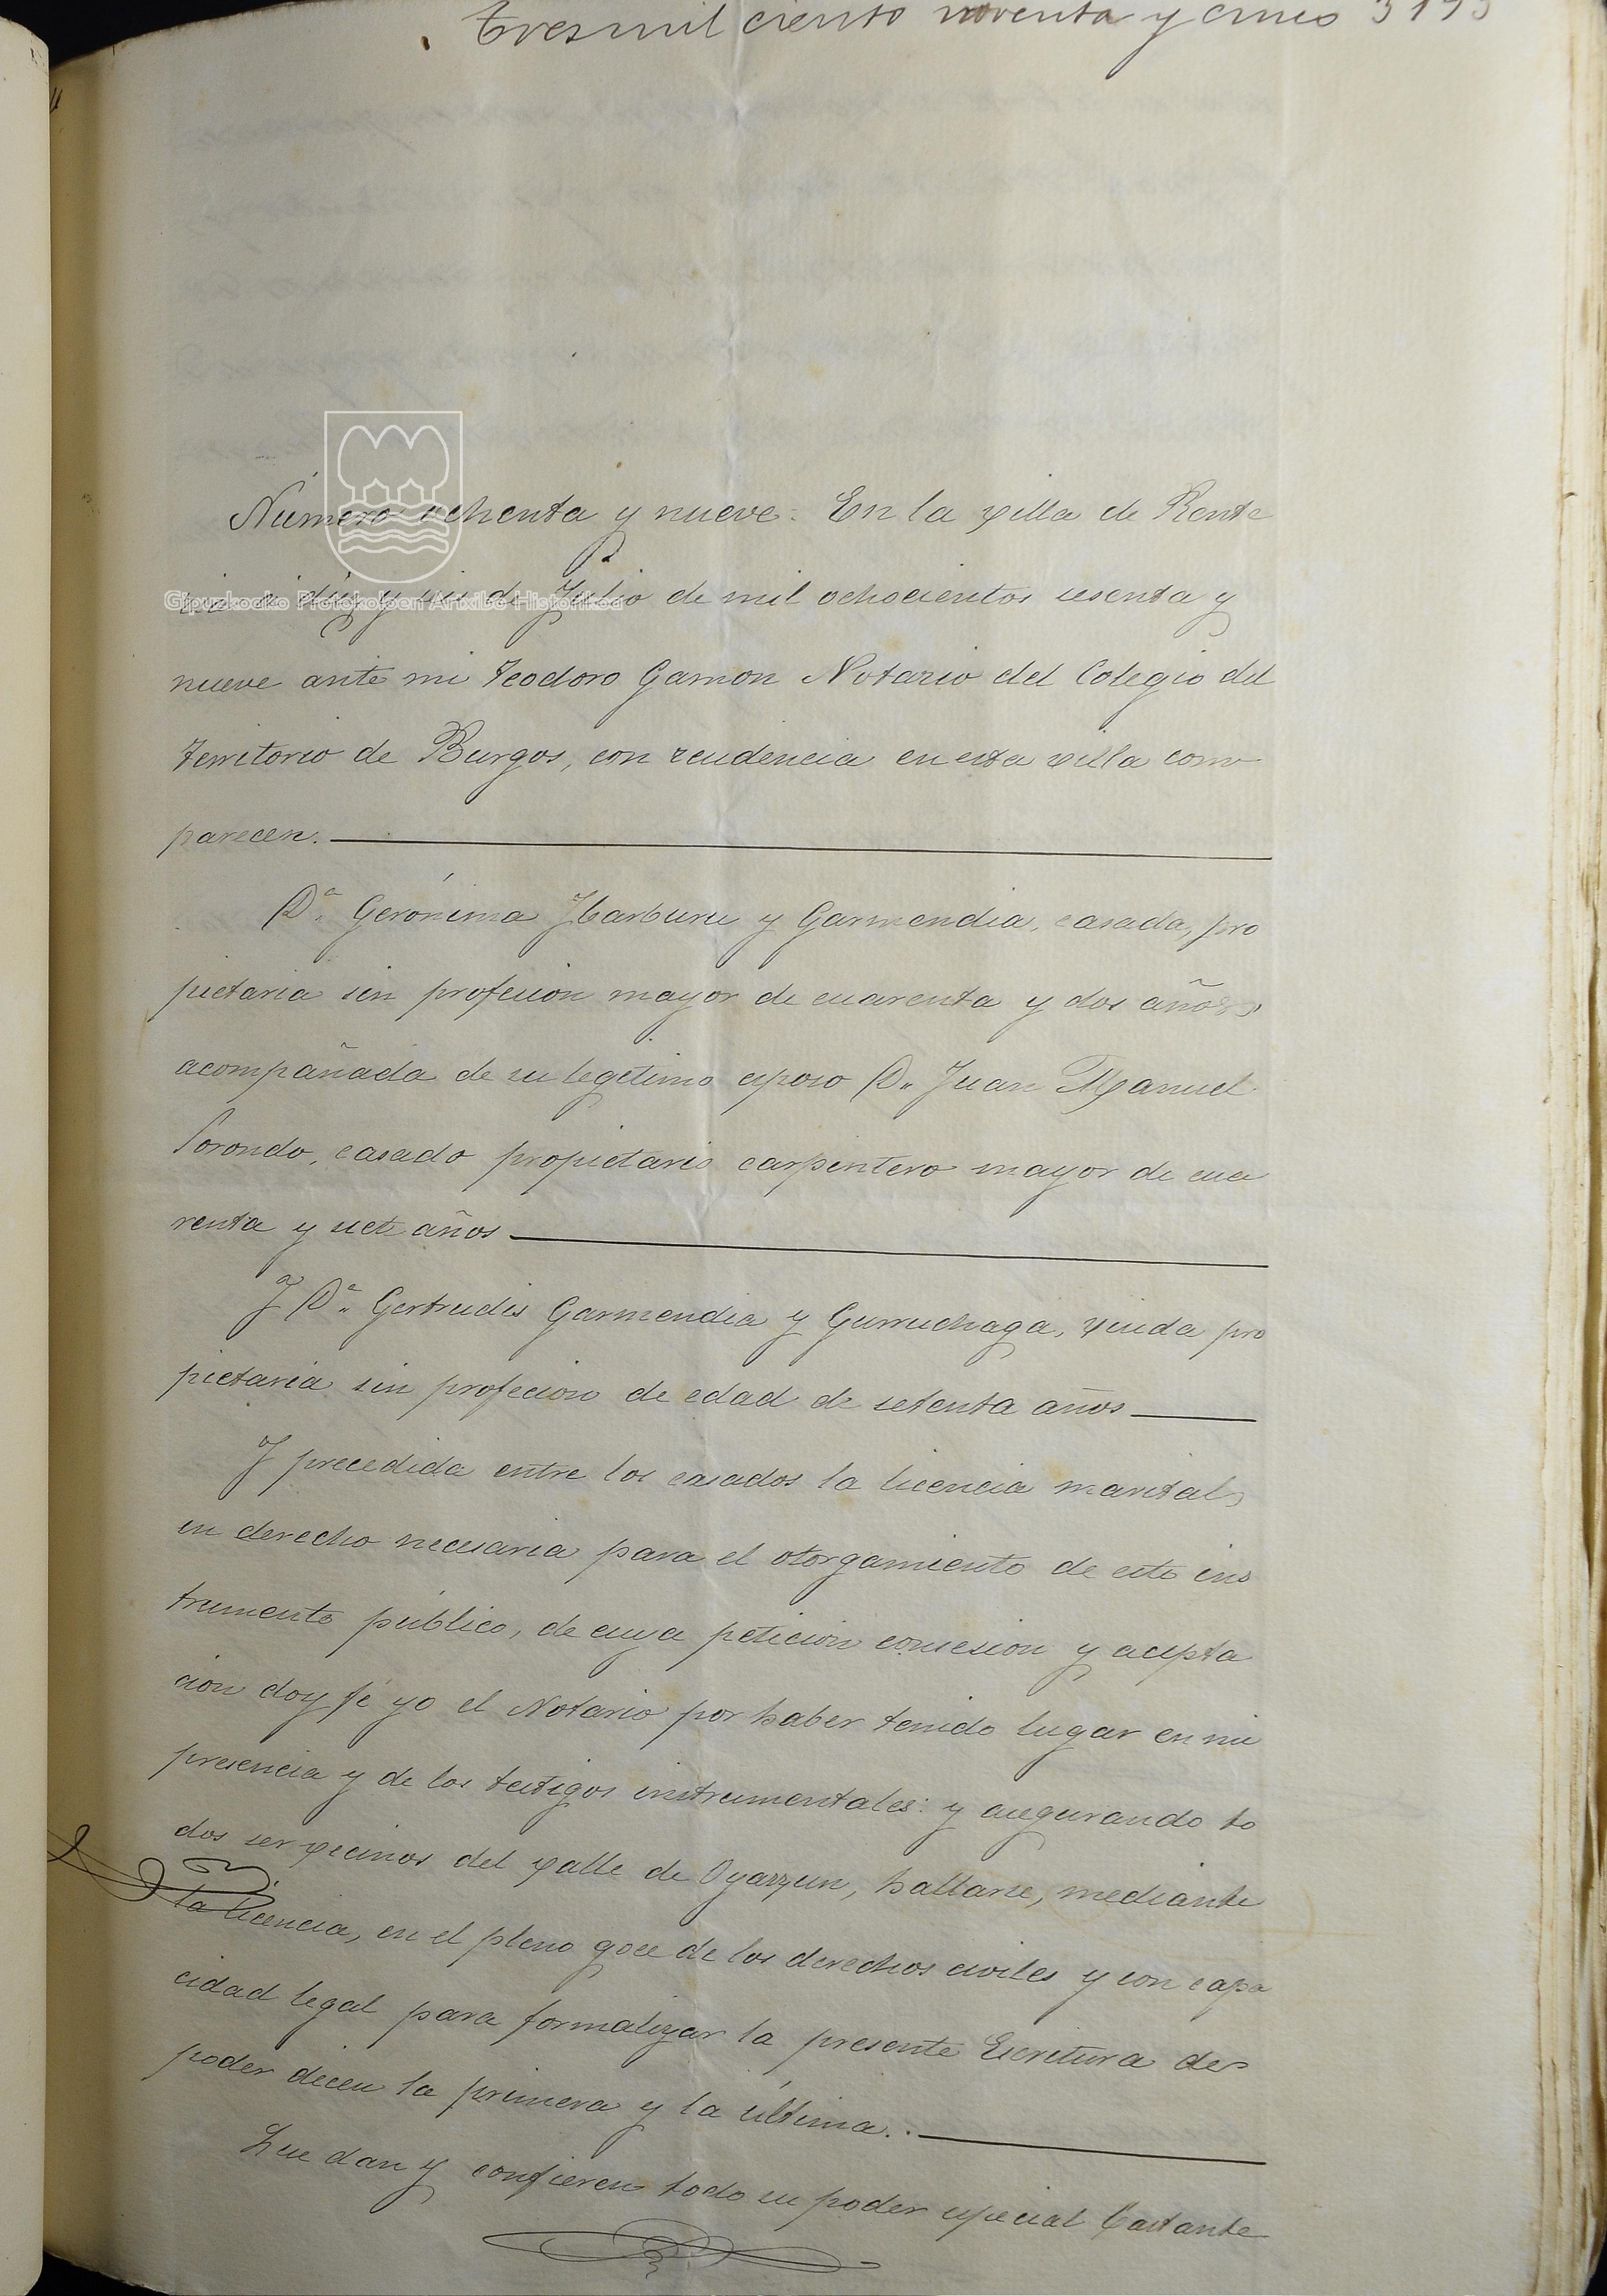 Tres mil ciento noventa y cinco 3195
Número ochenta y nueve. En la villa de Rente
ria a diez y seis de Julio de mil ochocientos sesenta y
Gipuzkoako Protokoloen Artxibo Historikoa
nueve ante mi Teodoro Gamon Notario del Colegio del
Territorio de Burgos, con residencia en esta villa com
parecen.
Dª Gerónima Ybarburu y Garmendia, casada, pro
pietaria sin profesion mayor de cuarenta y dos años
acompañada de su legitimo esposo Dn Juan Manuel
Sorondo, casado propietario carpintero mayor de cua
renta y siete años
Y Dª Gertrudis Garmendia y Gurruchaga, viuda pro
pietaria sin profesion de edad de setenta años
Y precedida entre los casados la licencia marital
en derecho necesaria para el otorgamiento de este ins
trumento público, de cuya peticion consesion y acepta
cion doy fé yo el Notario por haber tenido lugar en mi
presencia y de los testigos instrumentales: y asegurando to
dos ser vecinos del valle de Oyarzun, hallarse, mediante
la licencia, en el pleno goce de los derechos civiles y con capa
cidad legal para formalizar la presente Escritura de
poder dicen la primera y la última.
Que dan y confieren todo su poder especial bastante